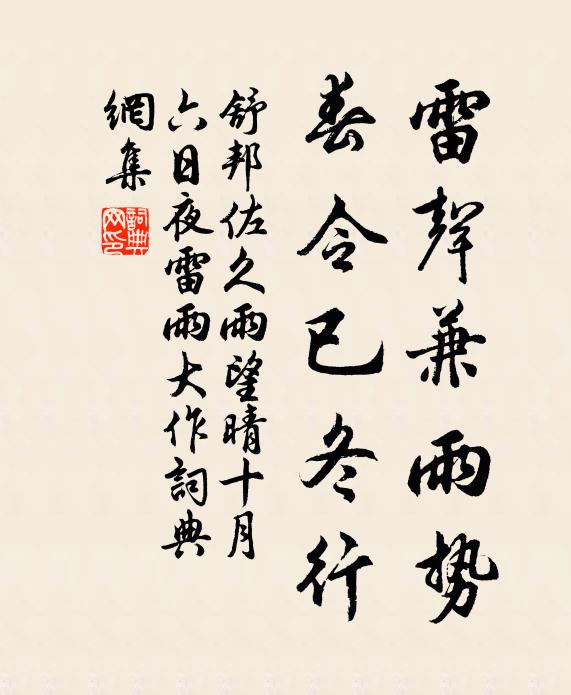 雷聲兼雨勢
春令已冬行
舒邦佐久雨望晴十月
六日夜雷雨大作詞典
網集
詞典网印